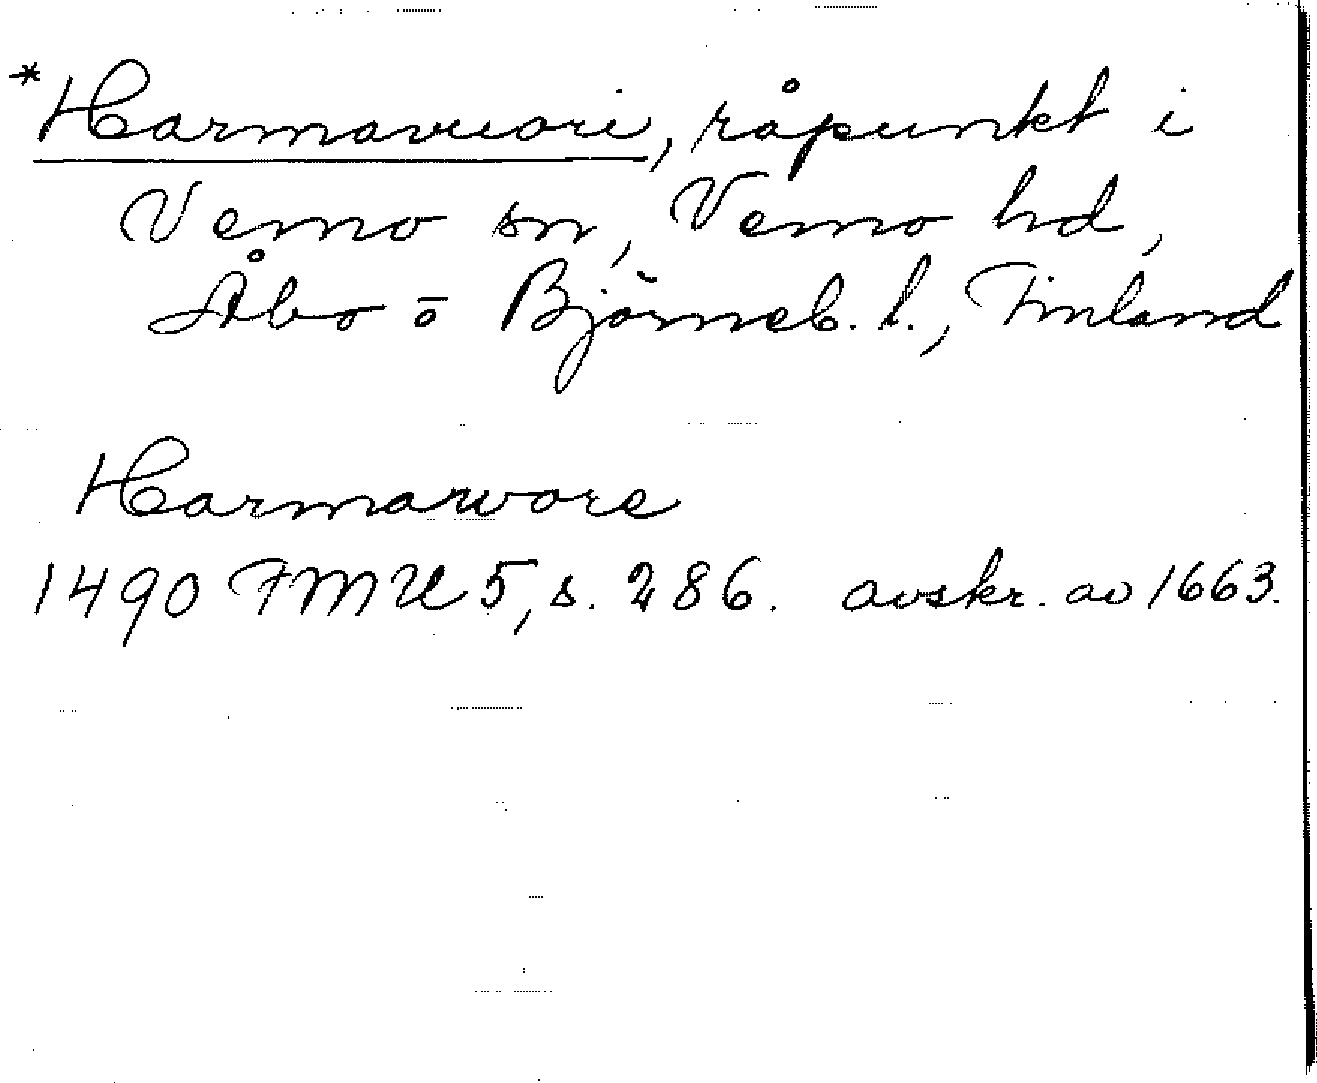 *Harmavuori, råpunkt i
Vemo sn, Vemo hd,
Åbo o Björneb. l., Finland
Harmarwore
1490 FMU 5, s. 286. avskr. av 1663.